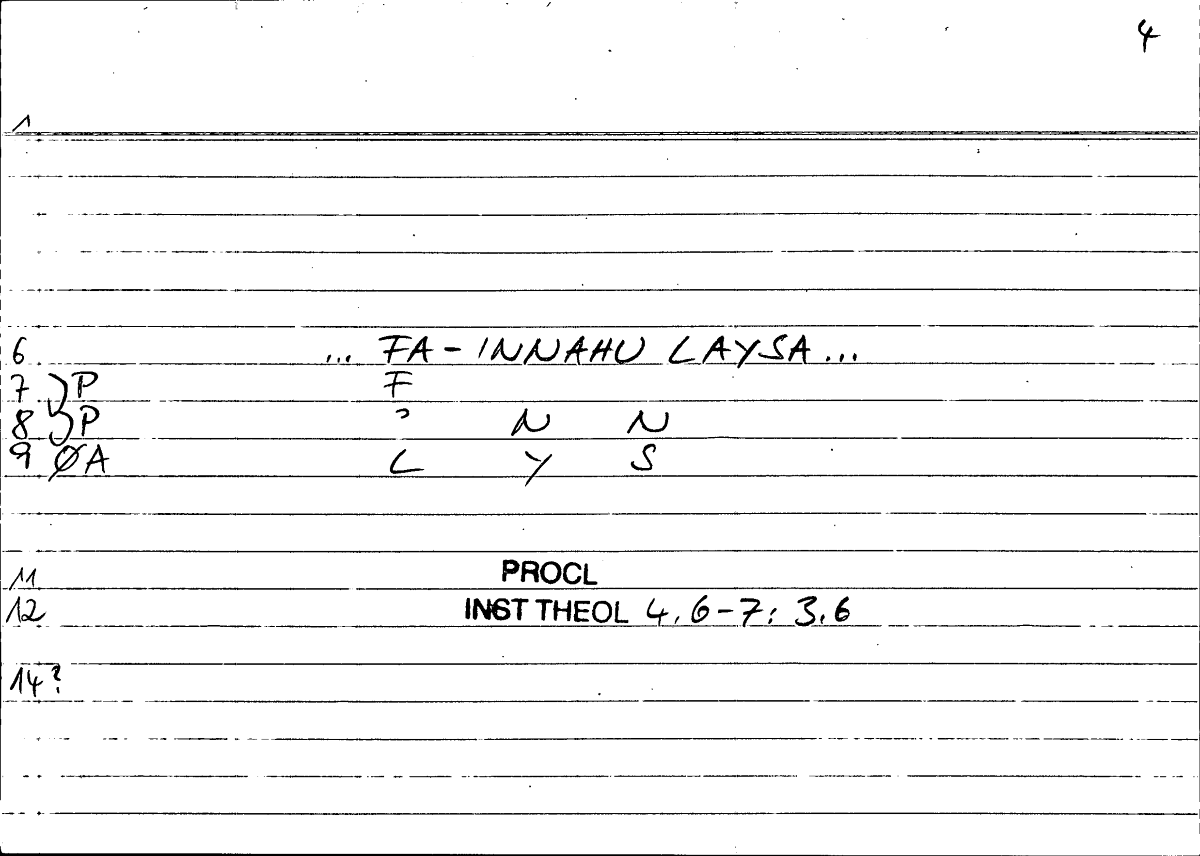 4
1
6 ... FA-INNAHU LAYSA...
7 P F
8 P ʾ N N
9 ØA L Y S
11 PROCL
12 INST THEOL 4,6-7: 3,6
14?